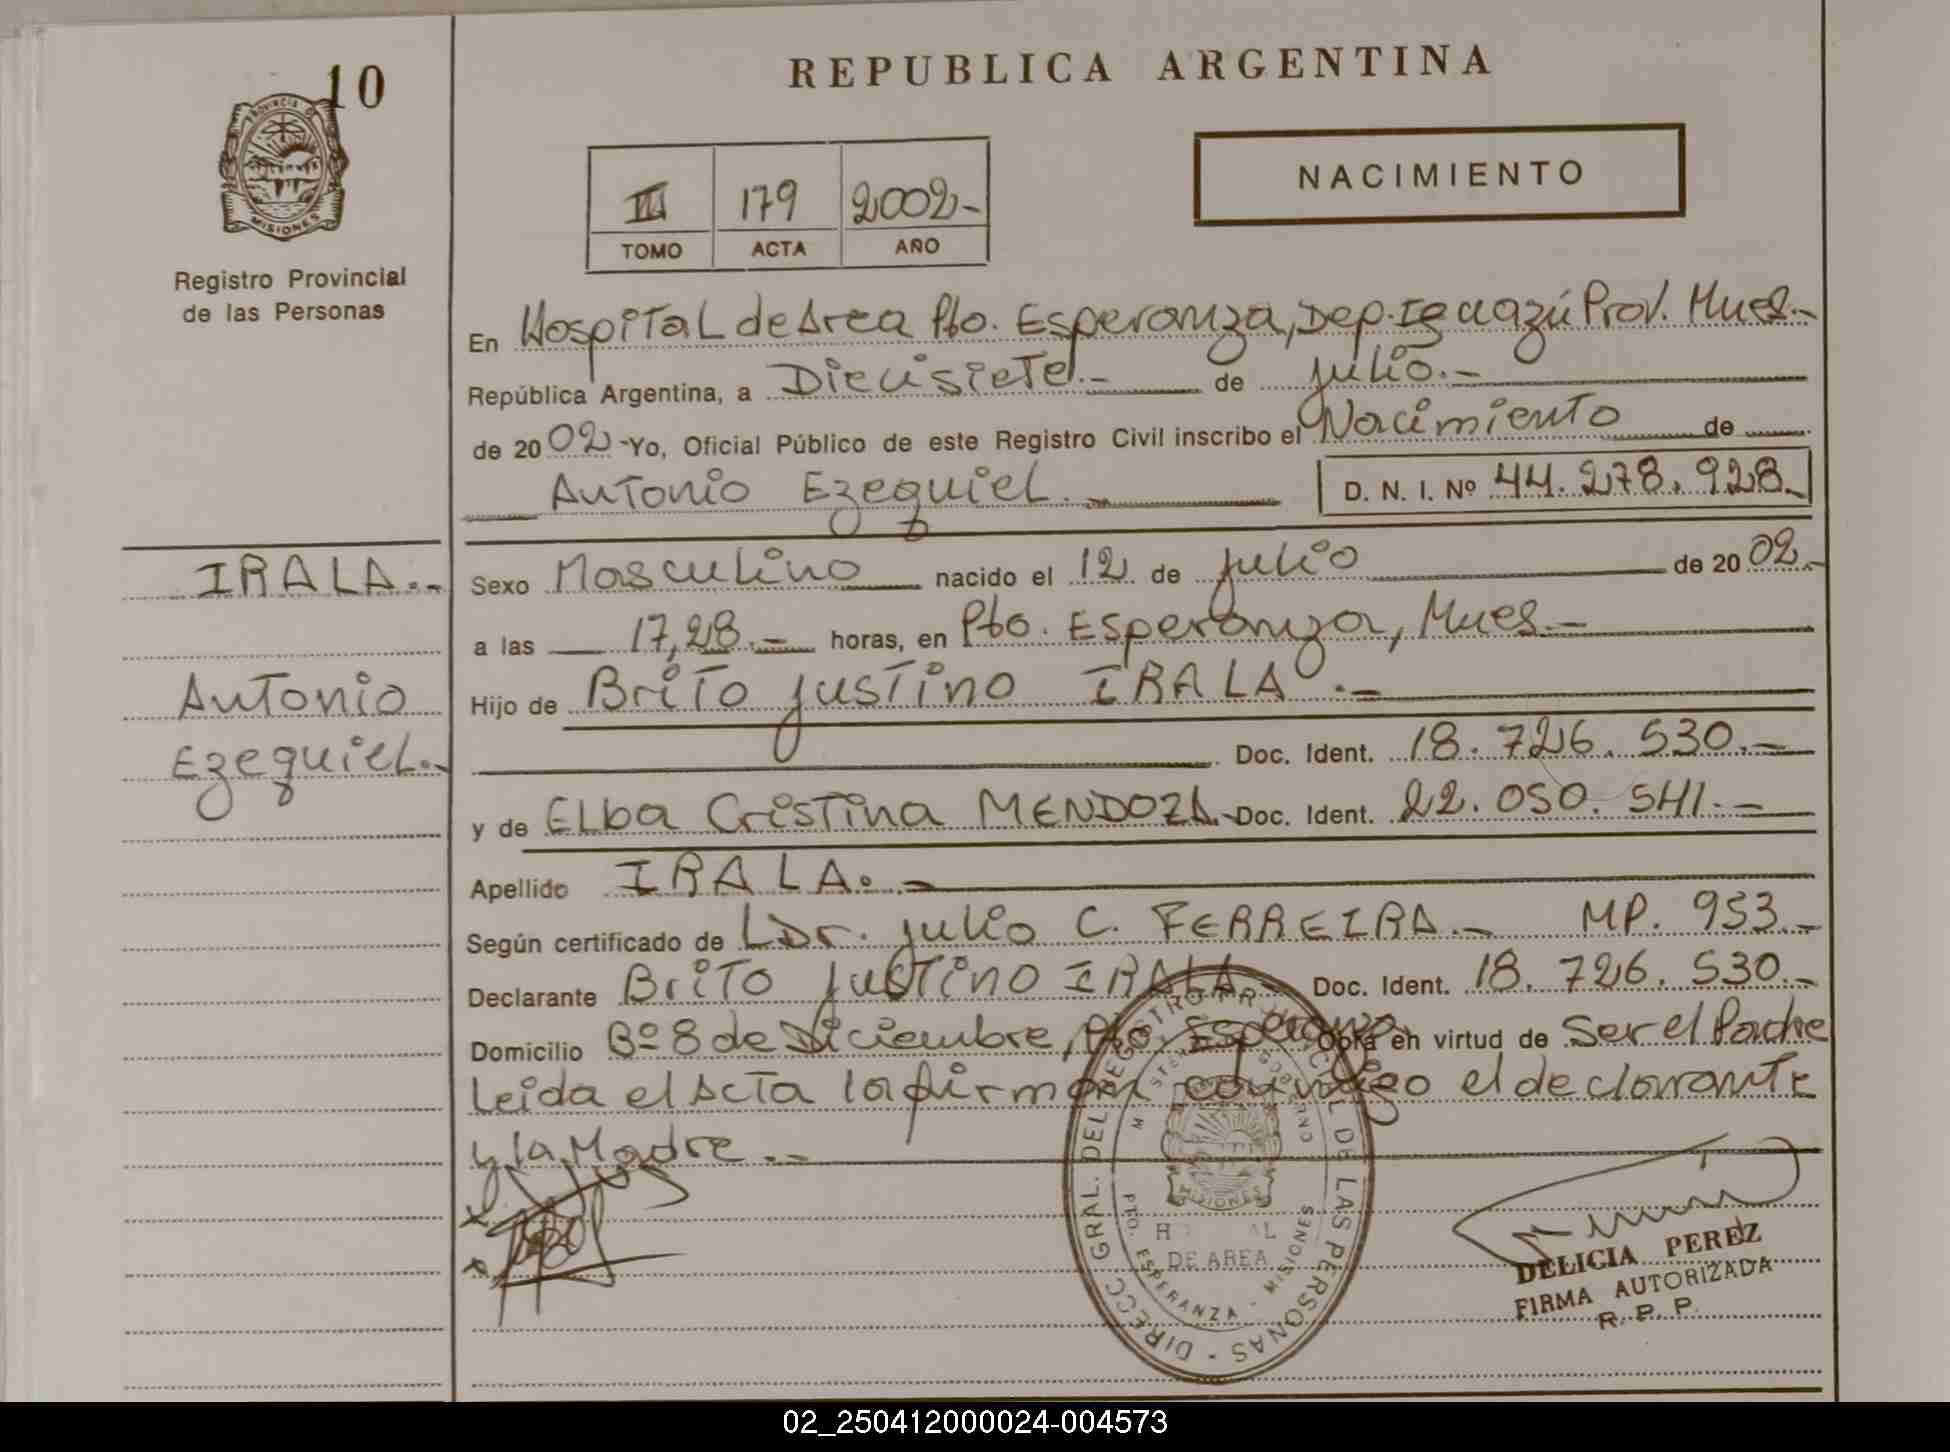 10
PROVINCIA DE
MISIONES
Registro Provincial
de las Personas
REPUBLICA ARGENTINA
III 179 2002-
TOMO ACTA AÑO
NACIMIENTO
En Hospital de Area Pto. Esperanza, Dep. Iguazú Prov. Mnes.-
República Argentina, a Diecisiete.- de julio.-
de 2002 -Yo, Oficial Público de este Registro Civil inscribo el Nacimiento de
Antonio Ezequiel.- D. N. I. Nº 44.278.928.-
IRALA.-
Antonio
Ezequiel.-
Sexo Masculino nacido el 12 de julio de 2002.-
a las 17,28.- horas, en Pto. Esperanza, Mnes.-
Hijo de Brito justino IRALA.-
Doc. Ident. 18.726.530.-
y de Elba Cristina MENDOZA.- Doc. Ident. 22.050.541.-
Apellido IRALA.-
Según certificado de Dr. julio C. FERREIRA.- MP. 953.-
Declarante Brito justino IRALA.- Doc. Ident. 18.726.530.-
Domicilio Bº 8 de Diciembre, Pto. Esperanza Obra en virtud de Ser el Padre
Leida el Acta la firman conmigo el declarante
y la Madre.-
DIRECC GRAL. DEL REGISTRO PROVINCIAL DE LAS PERSONAS -
MISIONES
DE AREA
PTO. ESPERANZA - MISIONES
DELICIA PEREZ
FIRMA AUTORIZADA
R. P. P.
02_250412000024-004573